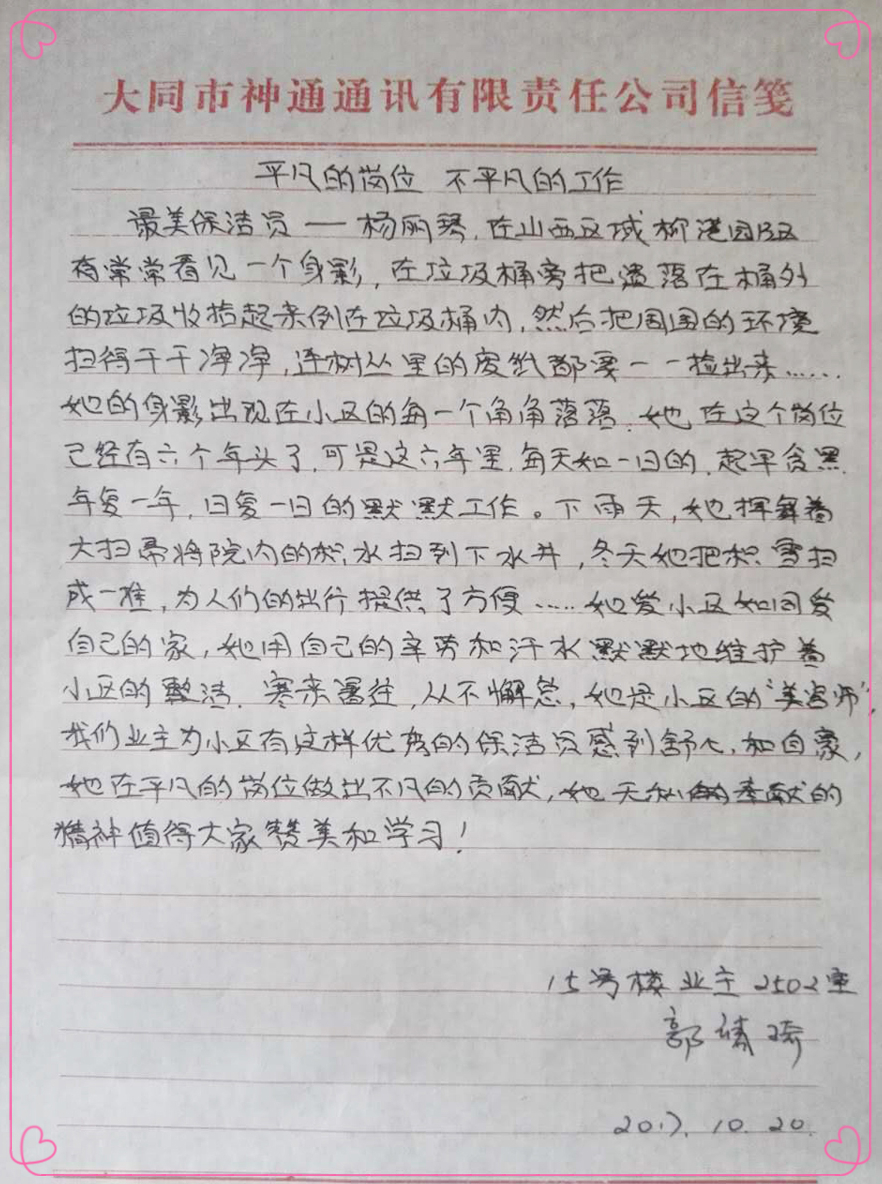 大同市神通通讯有限责任公司信笺
平凡的岗位 不平凡的工作
最美保洁员——杨丽琴,在山西区域柳港园小区
有常常看见一个身影,在垃圾桶旁把遗落在桶外
的垃圾收拾起来倒在垃圾桶内,然后把周围的环境
扫得干干净净,连树丛里的废纸都要一一捡出来……
她的身影出现在小区的每一个角角落落.她在这个岗位
已经有六个年头了,可是这六年里,每天如一日的,起早贪黑,
年复一年,日复一日的默默工作。下雨天,她挥舞着
大扫帚将院内的积水扫到下水井,冬天她把积雪扫
成一堆,为人们的出行提供了方便……她爱小区如同爱
自己的家,她用自己的辛劳和汗水默默地维护着
小区的整洁.寒来暑往,从不懈怠,她是小区的"美容师",
我们业主为小区有这样优秀的保洁员感到舒心,和自豪,
她在平凡的岗位做出不凡的贡献,她无私的奉献的
精神值得大家赞美和学习!
15号楼业主2502室
郭倩
2017.10.20.